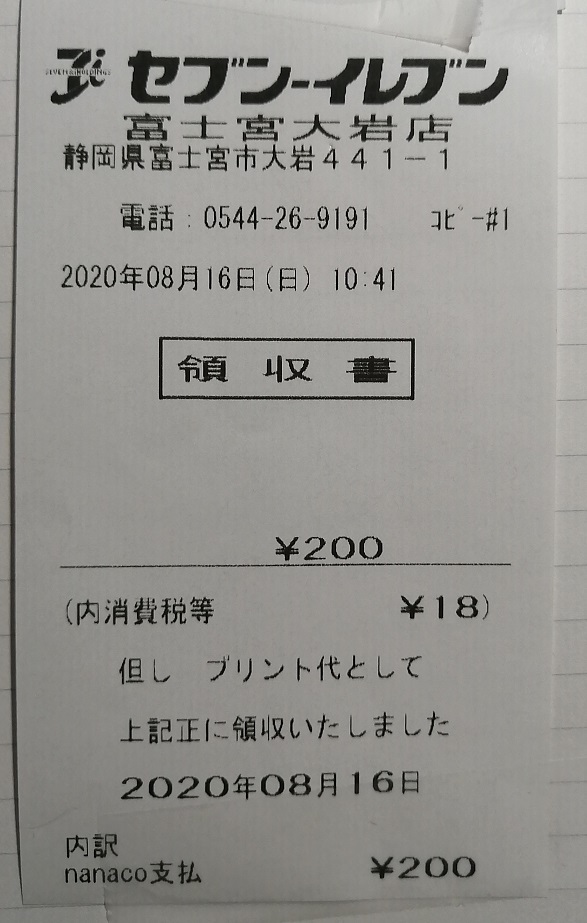 SEVEN&i HOLDINGS
セブン-イレブン
富士宮大岩店
静岡県富士宮市大岩441-1
電話:0544-26-9191 ｺﾋﾟｰ#1
2020年08月16日(日) 10:41
領収書
¥200
(内消費税等 ¥18)
但し プリント代として
上記正に領収いたしました
2020年08月16日
内訳
nanaco支払 ¥200